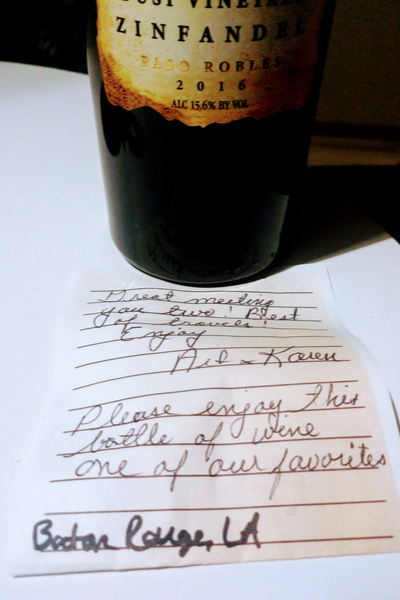 DUSI VINEYARD
ZINFANDEL
PASO ROBLES
2016
ALC 15.6% BY VOL
Great meeting
you two! Best
of travels!
Enjoy
Karen
Please enjoy this
bottle of wine
one of our favorites
Baton Rouge, LA